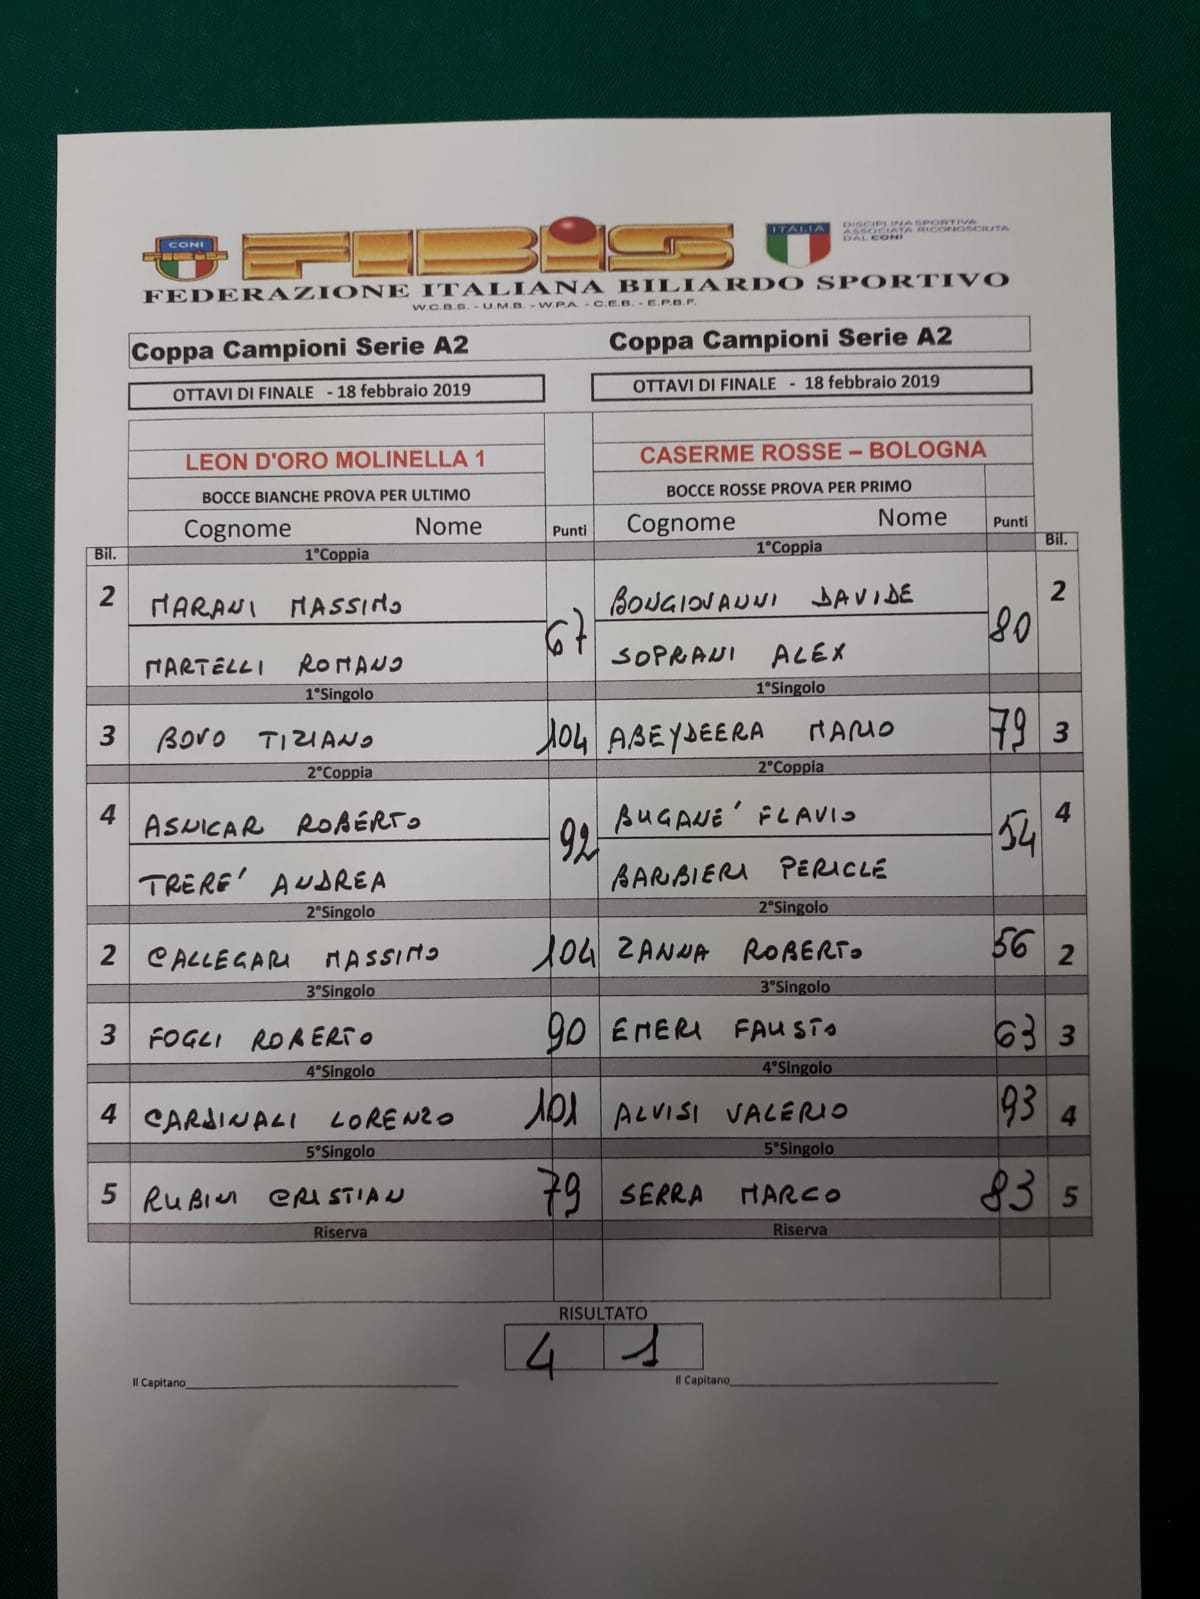 CONI FIBIS ITALIA DISCIPLINA SPORTIVA
ASSOCIATA RICONOSCIUTA
DAL CONI
FEDERAZIONE ITALIANA BILIARDO SPORTIVO
W.C.B.S. - U.M.B. - W.P.A. - C.E.B. - E.P.B.F.
Coppa Campioni Serie A2 Coppa Campioni Serie A2
OTTAVI DI FINALE - 18 febbraio 2019 OTTAVI DI FINALE - 18 febbraio 2019
LEON D'ORO MOLINELLA 1 CASERME ROSSE – BOLOGNA
BOCCE BIANCHE PROVA PER ULTIMO BOCCE ROSSE PROVA PER PRIMO
Cognome Nome Punti Cognome Nome Punti
Bil. 1°Coppia 1°Coppia Bil.
2 MARANI MASSIMO 67 BONGIOVANNI DAVIDE 80 2
MARTELLI ROMANO SOPRANI ALEX
1°Singolo 1°Singolo
3 BOVO TIZIANO 104 ABEYDEERA MARIO 79 3
2°Coppia 2°Coppia
4 ASNICAR ROBERTO 92 BUGANE' FLAVIO 54 4
TRERE' ANDREA BARBIERI PERICLE
2°Singolo 2°Singolo
2 CALLEGARI MASSIMO 104 ZANNA ROBERTO 56 2
3°Singolo 3°Singolo
3 FOGLI ROBERTO 90 EMERI FAUSTO 63 3
4°Singolo 4°Singolo
4 CARDINALI LORENZO 101 ALVISI VALERIO 93 4
5°Singolo 5°Singolo
5 RUBINI CRISTIAN 79 SERRA MARCO 83 5
Riserva Riserva
RISULTATO
4 1
Il Capitano Il Capitano